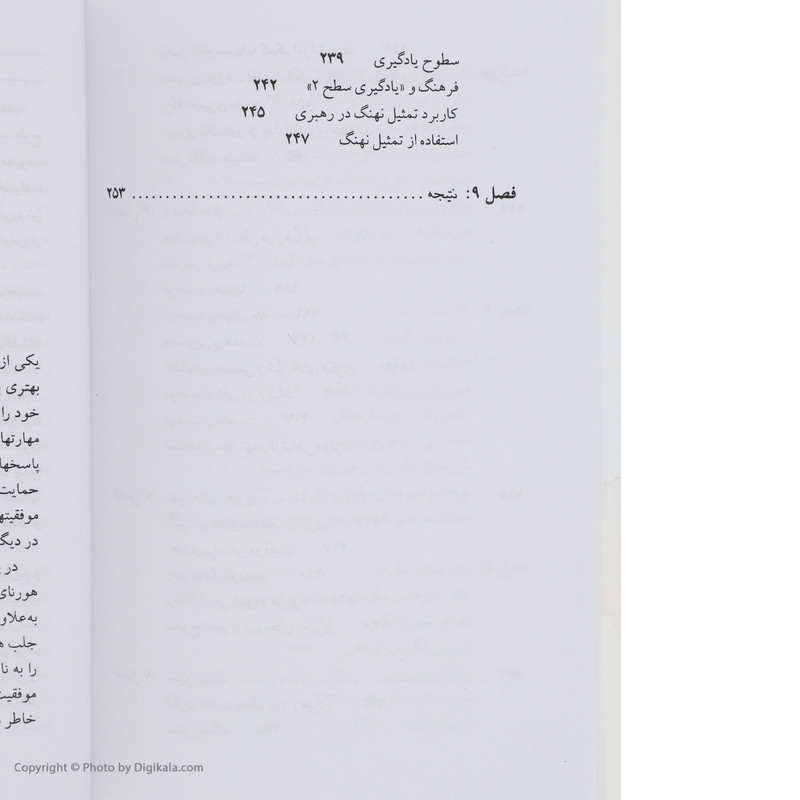 سطوح یادگیری ۲۳۹
فرهنگ و «یادگیری سطح ۲» ۲۴۲
کاربرد تمثیل نهنگ در رهبری ۲۴۵
استفاده از تمثیل نهنگ ۲۴۷
فصل ۹: نتیجه ........................................ ۲۵۳
یکی از
بهتری
خود را
مهارتها
پاسخها
حمایت
موفقیتها
در
در
هورنای
به‌علاو
جلب
را به
موفقیت
خاطر
Copyright © Photo by Digikala.com